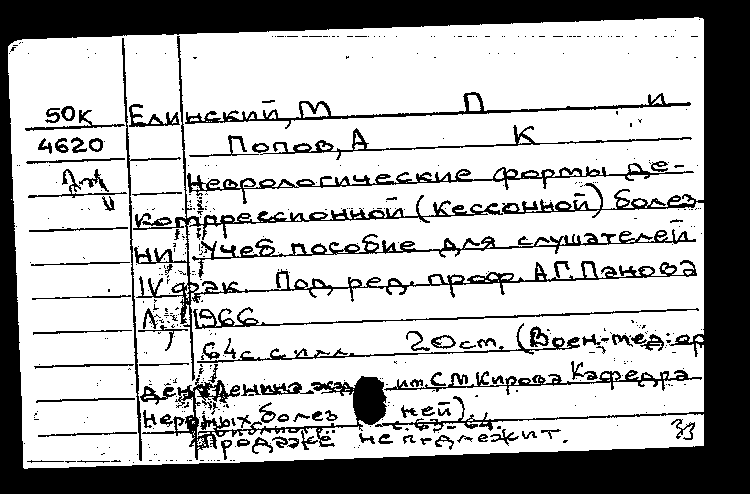 50К Елинский, М П и
4620 Попов, А К
Неврологические формы де-
компрессионной (кессонной) болез-
ни. Учеб. пособие для слушателей
IV фак. Под ред. проф. А.Г. Панова
Л., 1966.
64с. с илл. 20см. (Воен.-мед. ор
дена Ленина акад. им. С.М. Кирова Кафедра
нервных болез ней).
Библиогр.: с. 63-64.
Продаже не подлежит. 33